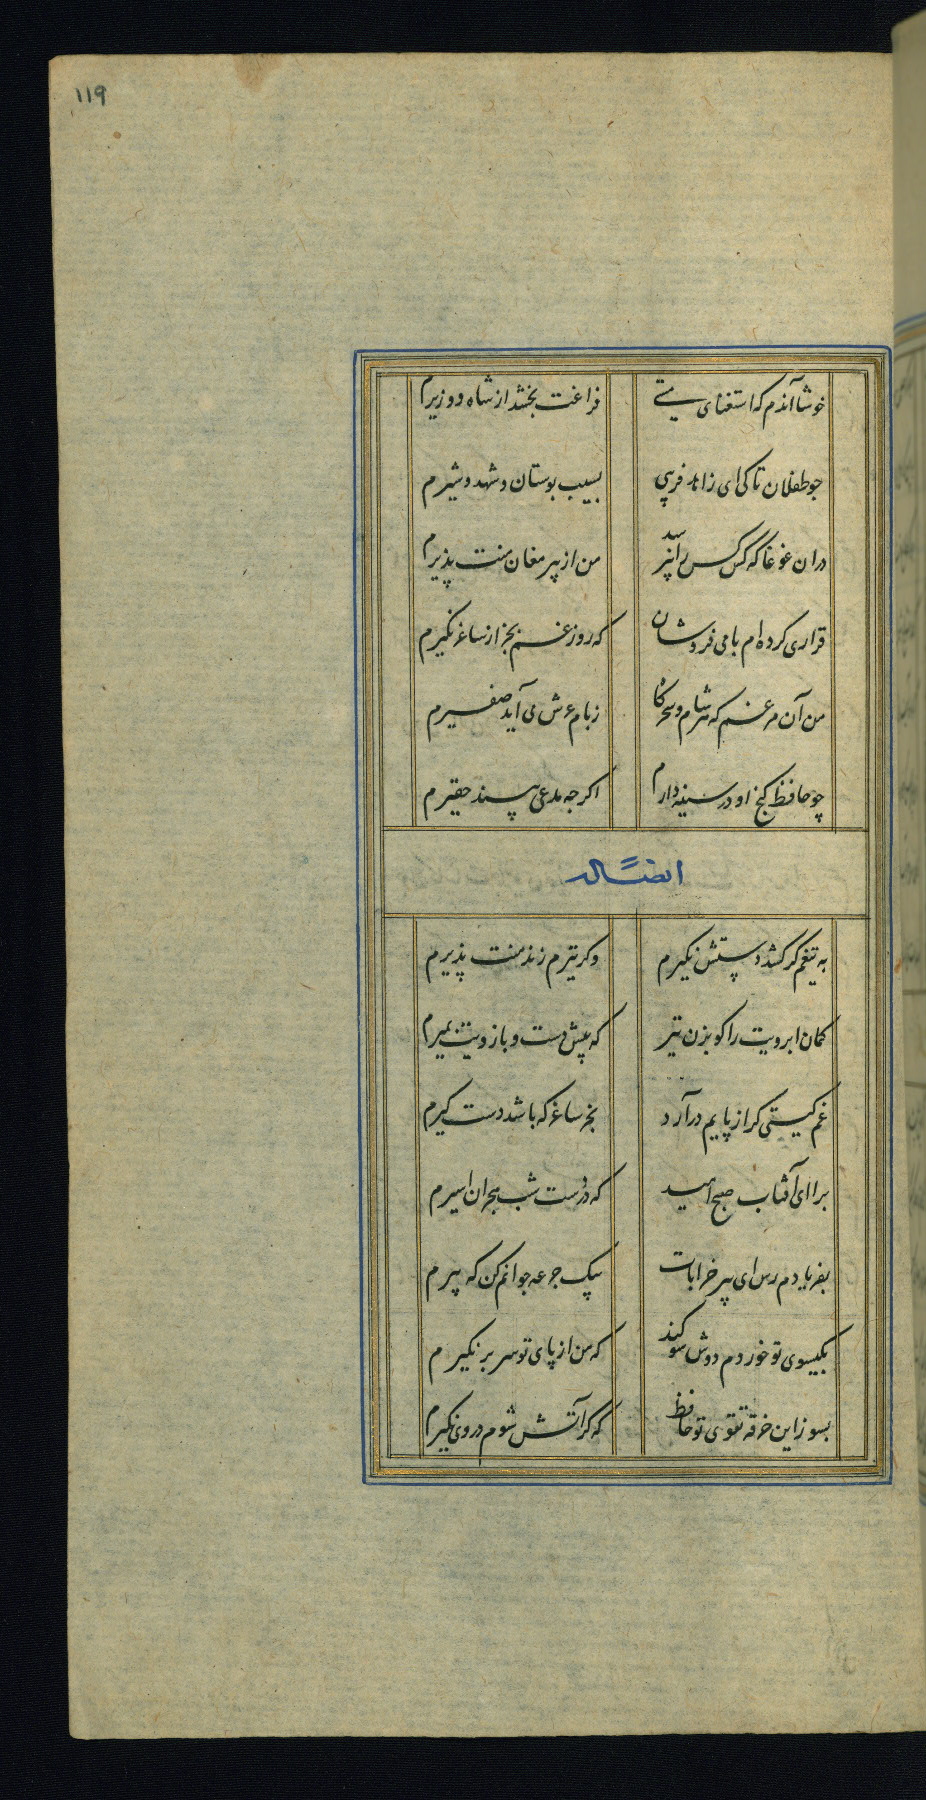 ۱۱۹
خوشا آندم که استغنای مستی فراغت بخشد از شاه و وزیرم
چو طفلان تا کی ای زاهد فریبی بسیب بوستان و شهد و شیرم
دران غوغا که کس کس را نپرسد من از پیر مغان منت پذیرم
قراری کرده ام با می فروشان که روز غم بجز از ساغر نگیرم
من آن مرغم که هر شام و سحرگاه ز بام عرش می آید صفیرم
چو حافظ گنج او در سینه دارم اگر چه مدعی بیند حقیرم
ایضاً له
به تیغم گر کشد دستش نگیرم وگر تیرم زند منت پذیرم
کمان ابرویت را گو بزن تیر که پیش دست و بازویت بمیرم
غم گیتی گر از پایم درآرد بجز ساغر که باشد دست گیرم
برا ای آفتاب صبح امید که در دست شب هجران اسیرم
بفریادم رس ای پیر خرابات بیک جرعه جوانم کن که پیرم
بگیسوی تو خوردم دوش سوگند که من از پای تو سر بر نگیرم
بسوز این خرقه تقوی تو حافظ که گر آتش شوم در وی نگیرم